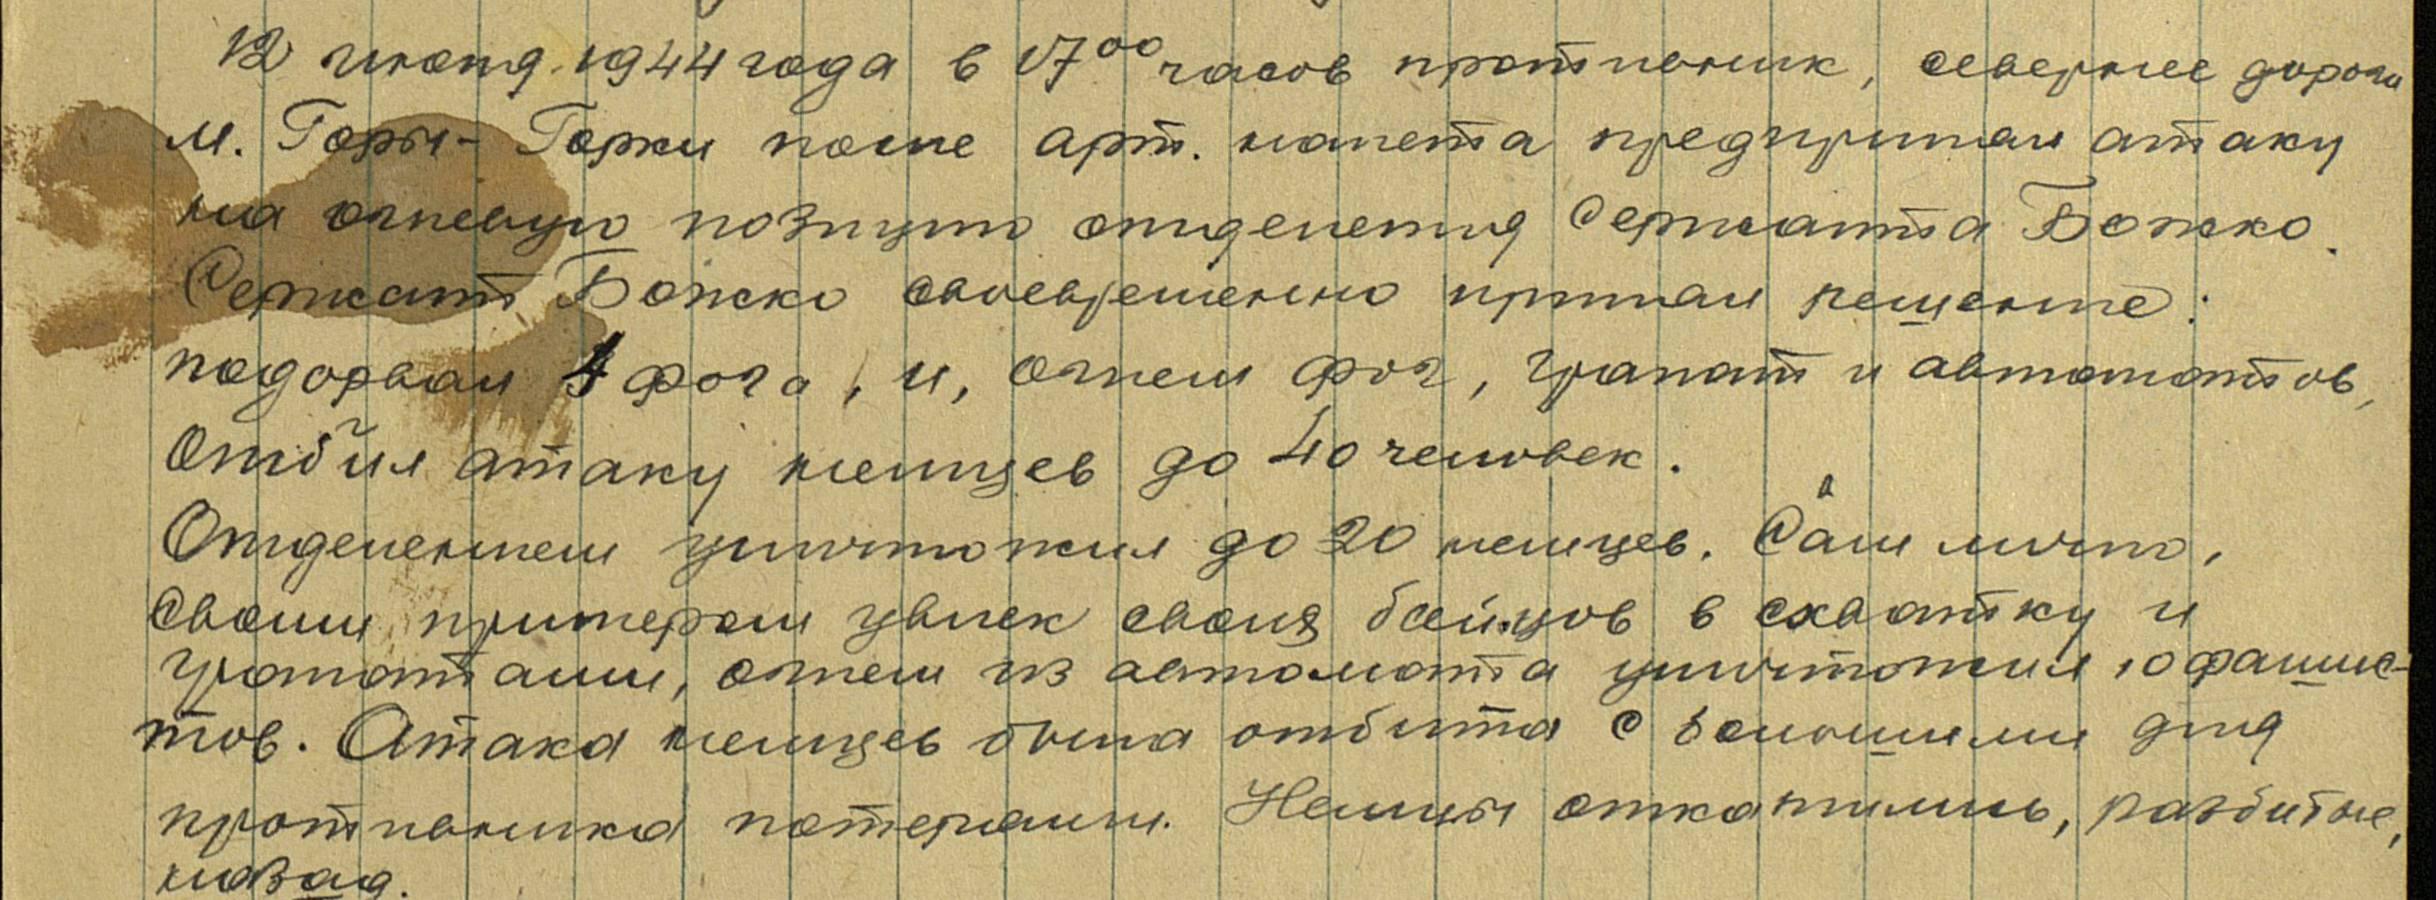 12 июня 1944 года в 17⁰⁰ часов противник, севернее дороги
м. Горы-Горки после арт. налета предпринял атаку
на огневую позицию отделения Сержанта Божко.
Сержант Божко своевременно принял решение:
подорвал 4 фога, и, огнем фог, гранат и автоматов,
Отбил атаку немцев до 40 человек.
Отделением уничтожил до 20 немцев. Сам лично,
своим примером увлек своих бойцов в схватку и
гранатами, огнем из автомата уничтожил 10 фашис-
тов. Атака немцев была отбита с большими для
противника потерями. Немцы откатились, разбитые,
назад.